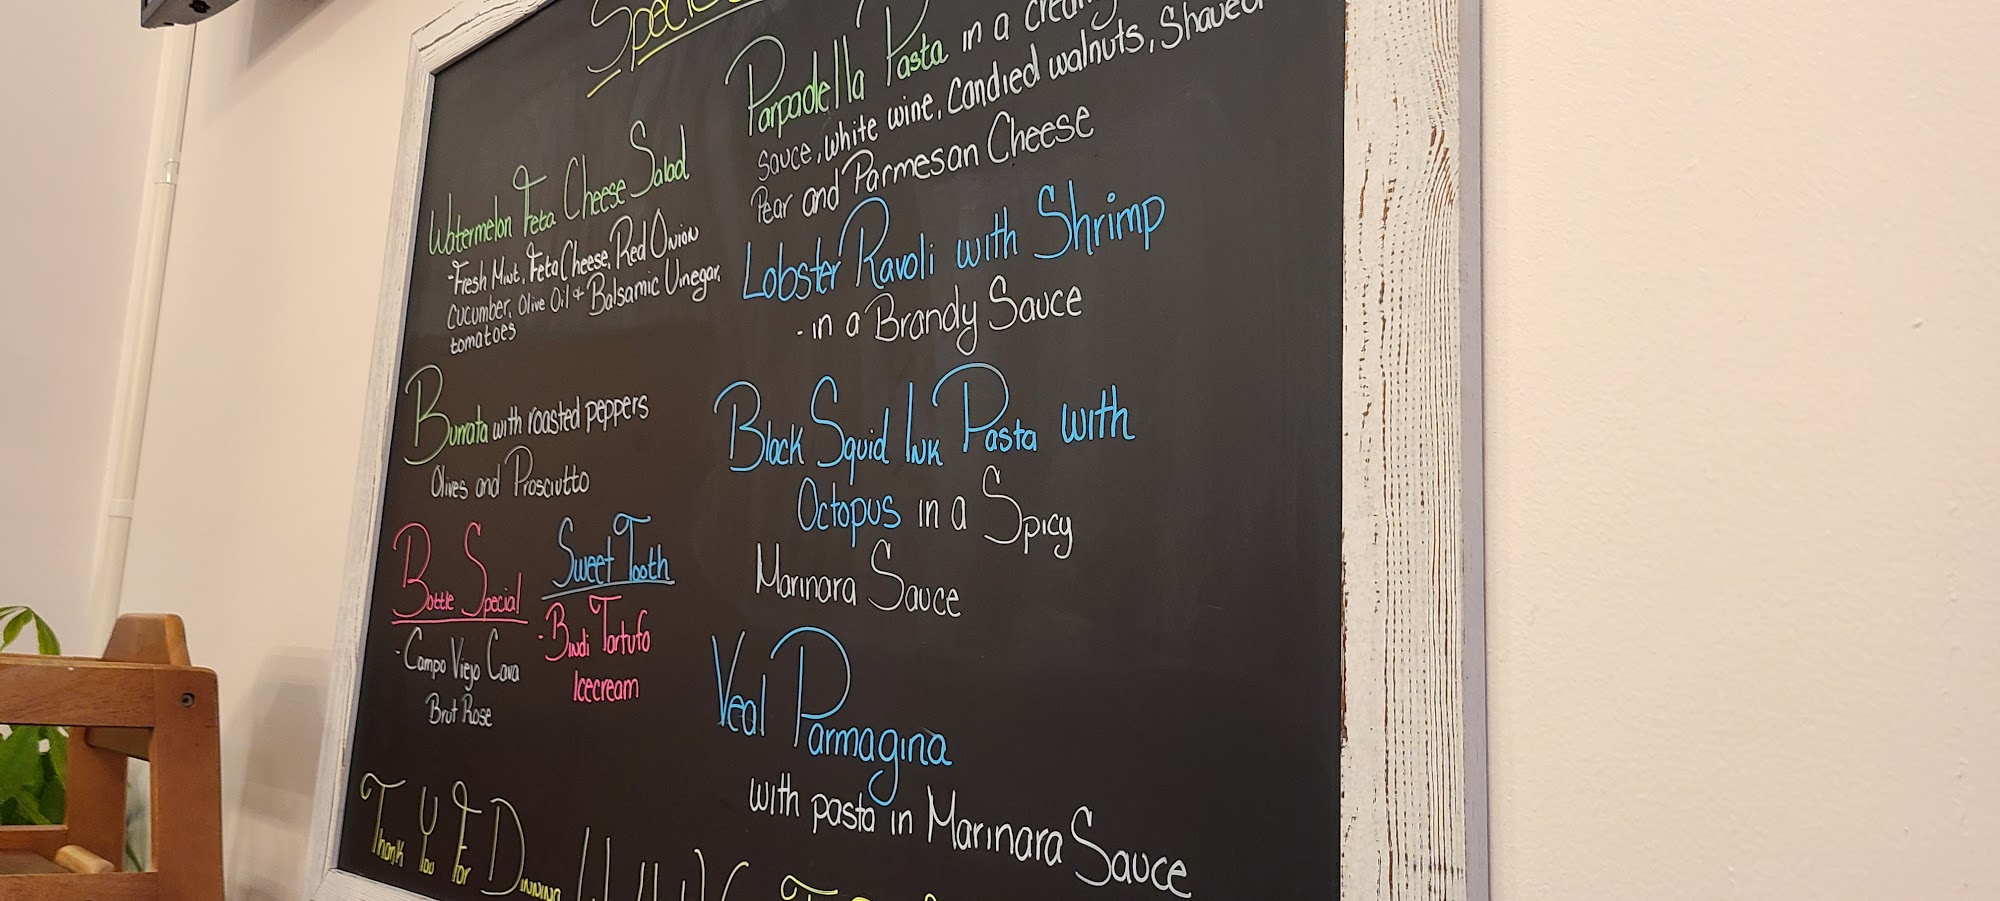 Specials
Watermelon Feta Cheese Salad
-Fresh Mint, Feta Cheese, Red Onion
Cucumber, Olive Oil + Balsamic Vinegar,
tomatoes
Burrata with roasted peppers
Olives and Prosciutto
Bottle Special
-Campo Viejo Cava
Brut Rose
Sweet Tooth
-Bindi Tartufo
Icecream
Parpadella Pasta in a creamy
sauce, white wine, Candied walnuts, Shaved
Pear and Parmesan Cheese
Lobster Ravoli with Shrimp
-in a Brandy Sauce
Black Squid Ink Pasta with
Octopus in a Spicy
Marinara Sauce
Veal Parmagina
with pasta in Marinara Sauce
Thank You For Dinning